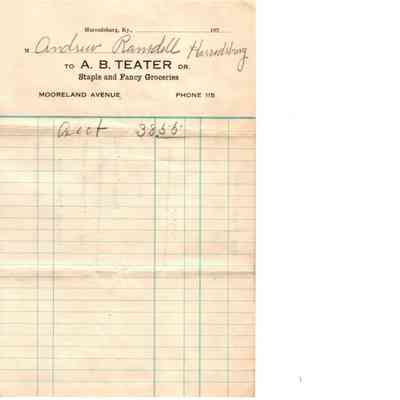 Harrodsburg, Ky., 192
M Andrew Ramsdell Harrodsburg
TO A. B. TEATER DR.
Staple and Fancy Groceries
MOORELAND AVENUE PHONE 115
acct 38.55